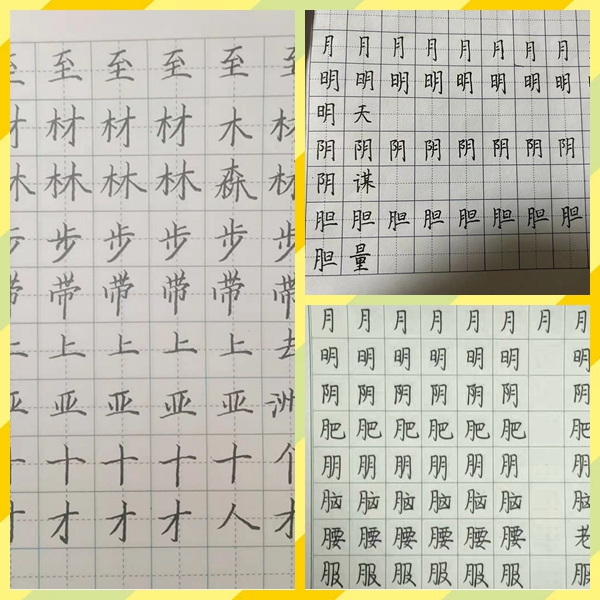 至 至 至 至 至
材 材 材 材 木 材
林 林 林 林 森 林
步 步 步 步 步 步
带 带 带 带 带 带
上 上 上 上 上 去
亚 亚 亚 亚 亚 洲
十 十 十 十 十 个
才 才 才 才 人 才
月 月 月 月 月 月 月 月
明 明 明 明 明 明 明 明
明 天
阴 阴 阴 阴 阴 阴 阴 阴
阴 谋
胆 胆 胆 胆 胆 胆 胆 胆
胆 量
月 月 月 月 月 月 月 月
明 明 明 明 明 明 明
阴 阴 阴 阴 阴 阴 阴
肥 肥 肥 肥 肥 肥 肥
朋 朋 朋 朋 朋 朋 朋
脑 脑 脑 脑 脑 脑 脑
腰 腰 腰 腰 腰 腰 老
服 服 服 服 服 服 服